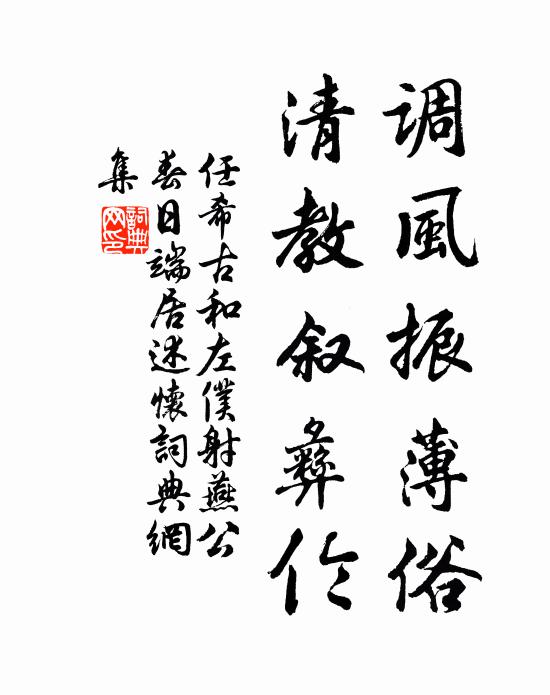 調風振薄俗
清教叙彝伦
任希古和左僕射燕公
春日端居述懷詞典網
集
詞典
网印